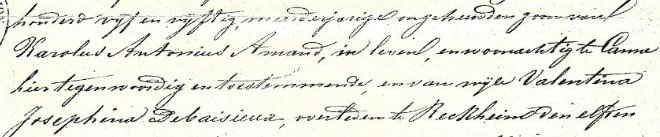 honderd vijf en vijftig, meerderjarige ongehuwden zoon van
Karolus Antonius Amand, in leven, en woonachtig te Canne
hier tegenwoordig en toestemmende, en van wijle Valentina
Josephina Debaisieux, overleden te Reckheim den elfden